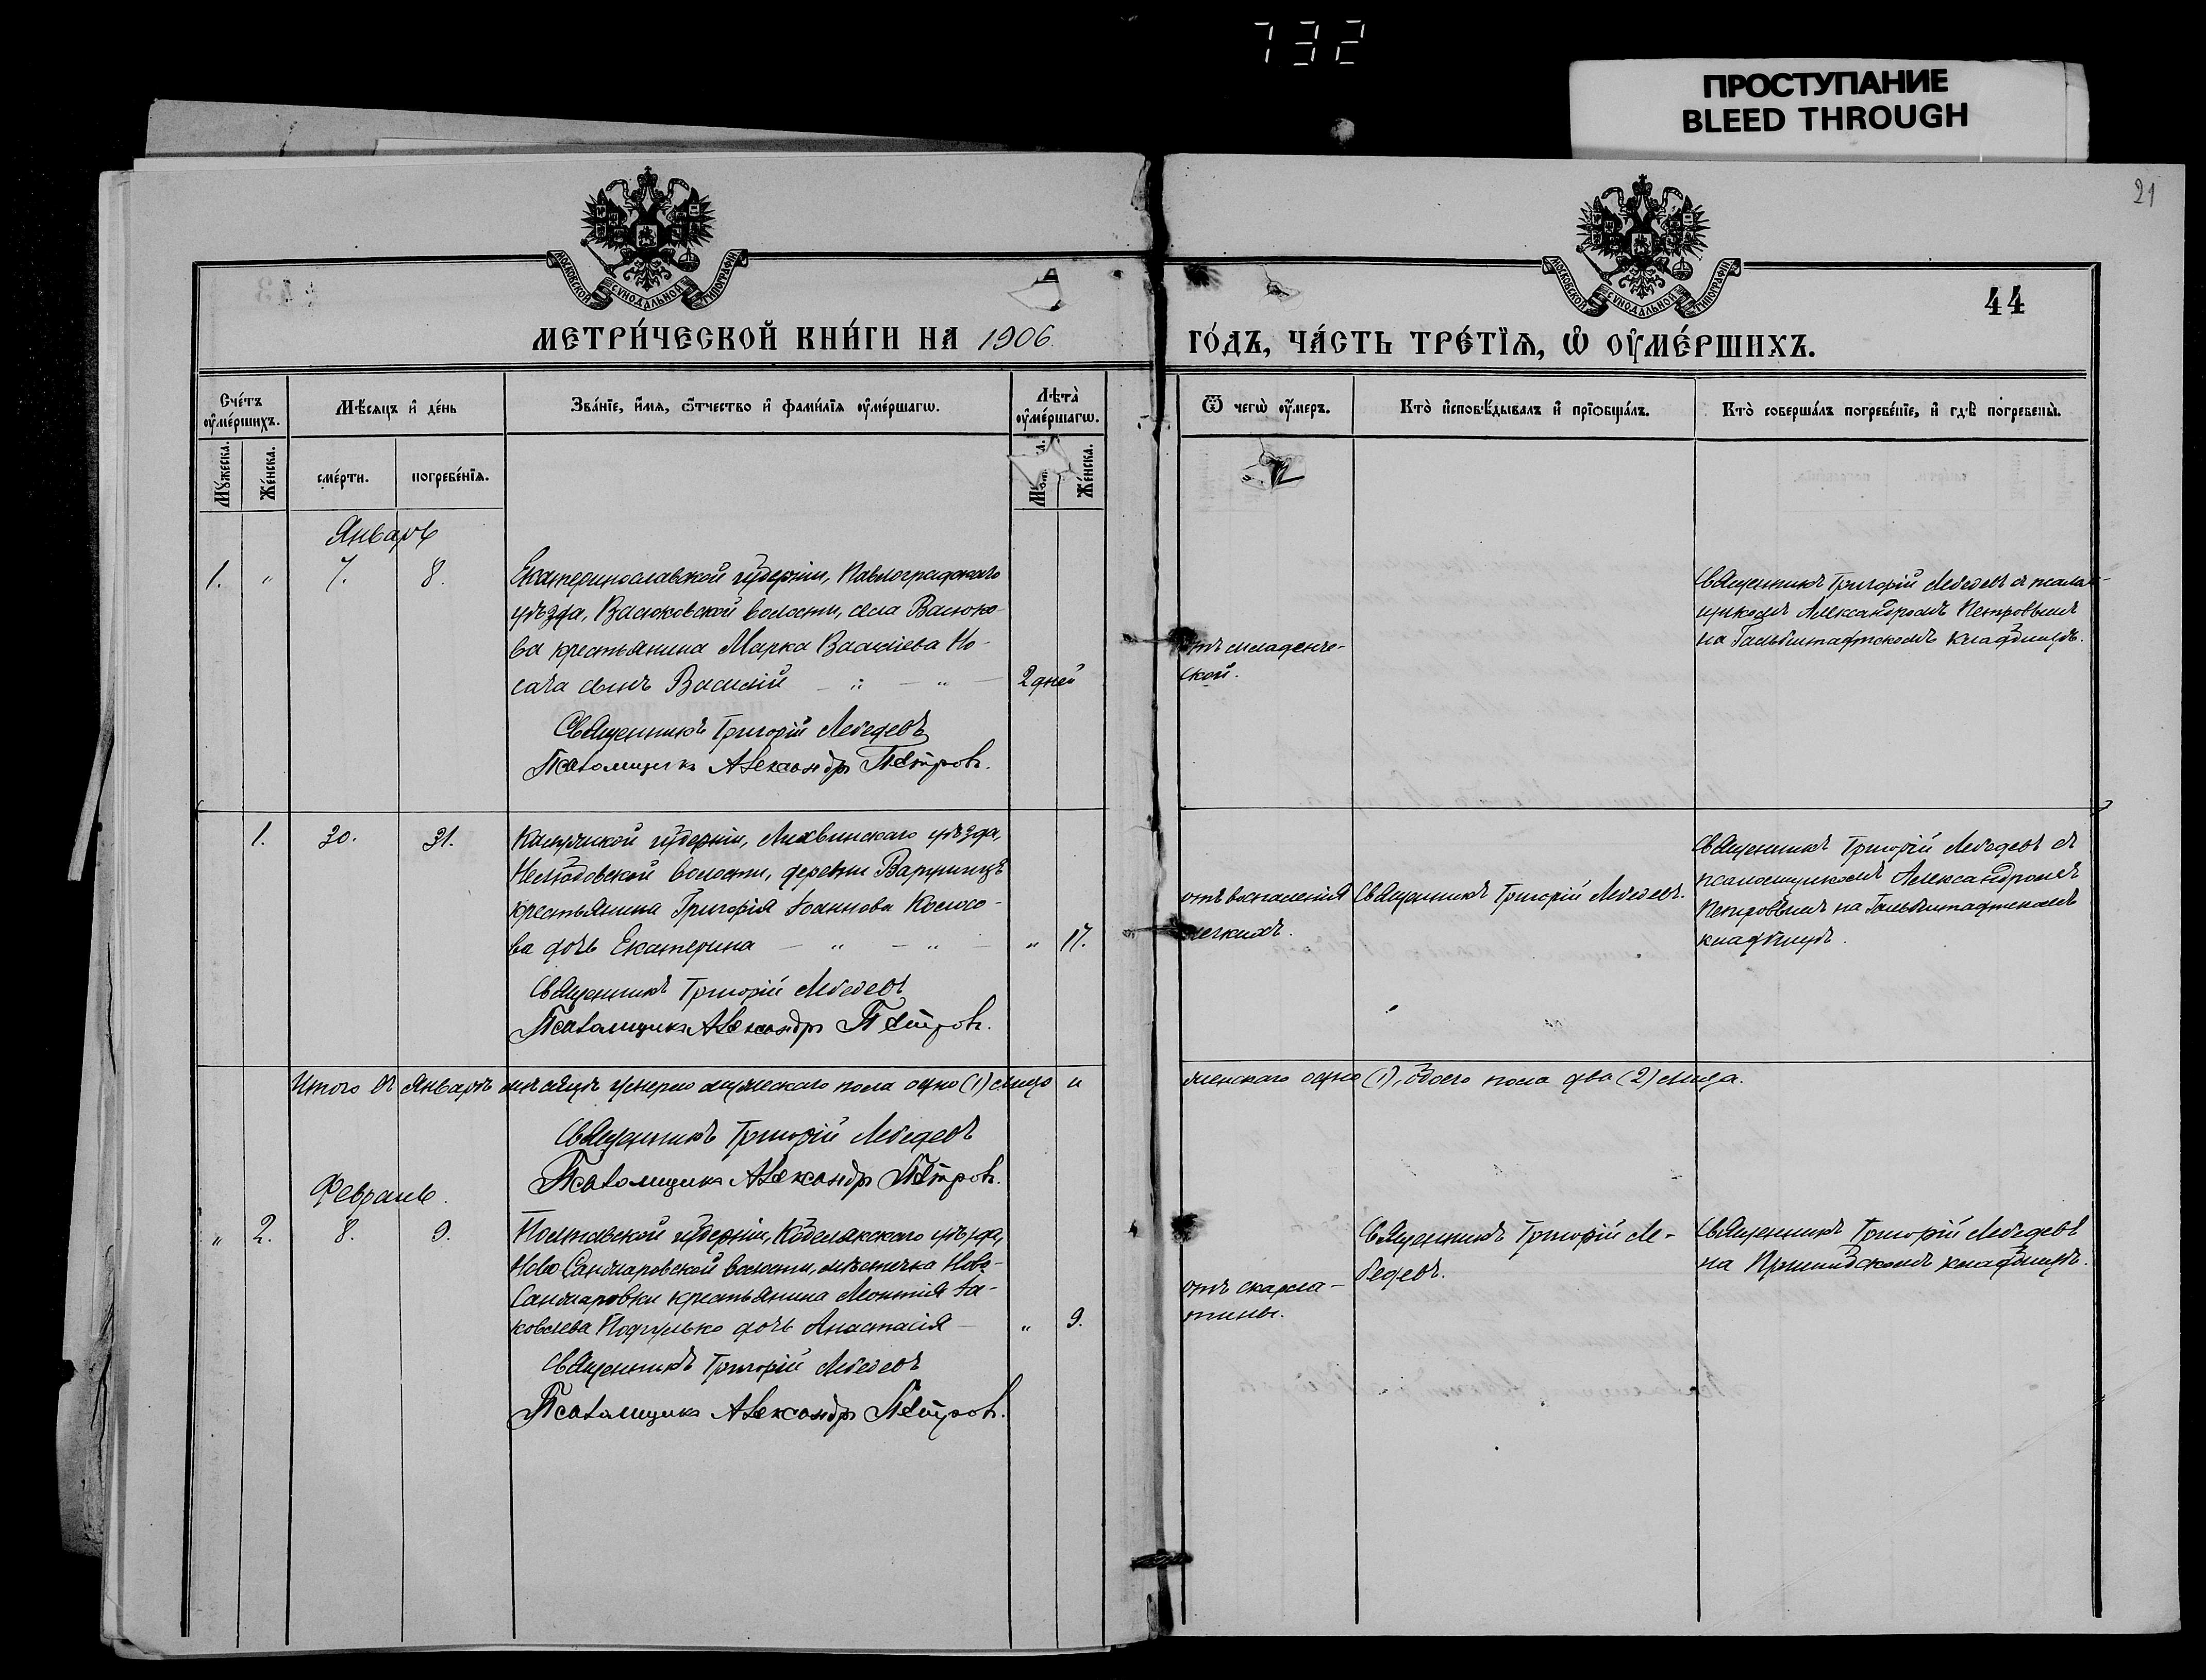 732
ПРОСТУПАНИЕ
BLEED THROUGH
21
МОСКОВСКОЙ СѴНОДАЛЬНОЙ ТИПОГРАФІИ
МОСКОВСКОЙ СѴНОДАЛЬНОЙ ТИПОГРАФІИ
44
МЕТРИ́ЧЕСКОЙ КНИ́ГИ НА 1906.
ГО́ДЪ, ЧА́СТЬ ТРЕ́ТІѦ, Ѡ҆ ОУ҆МЕ́РШИХЪ.
Сче́тъ оу҆ме́ршихъ.
Мѣ́сѧцъ и҆ де́нь
Зва́нїе, и҆́мѧ, ѻ҆́тчество и҆ фами́лїѧ оу҆ме́ршагѡ.
Лѣ́та оу҆ме́ршагѡ.
Ѿ чегѡ̀ оу҆́меръ.
Кто̀ и҆сповѣ́дывалъ и҆ прїѡбща́лъ.
Кто̀ соверша́лъ погребе́нїе, и҆ гдѣ̀ погребены̀.
Мꙋ́жеска.
Же́нска.
сме́рти.
погребе́нїѧ.
Же́нска.
Январь
1. " 7. 8.
Екатеринославской губерніи, Павлоградскаго
уѣзда, Васюковской волости, села Васюко-
ва крестьянина Марка Василіева Но-
сача сынъ Василій — " — " — 2 дней
Священникъ Григорій Лебедевъ
Псаломщикъ Александръ Петровъ.
отъ младенче-
ской.
Священникъ Григорій Лебедевъ съ псалом-
щикомъ Александромъ Петровымъ
на Гальбштадтскомъ кладбищѣ.
1. 30. 31.
Калужской губерніи, Лихвинскаго уѣзда,
волости, деревни
крестьянина Григорія Іоаннова Колосо-
ва дочь Екатерина — " — " — " 17.
Священникъ Григорій Лебедевъ
Псаломщикъ Александръ Петровъ.
отъ воспаленія
легкихъ.
Священникъ Григорій Лебедевъ.
Священникъ Григорій Лебедевъ съ
псаломщикомъ Александромъ
Петровымъ на Гальбштадтскомъ
кладбищѣ.
Итого въ Январѣ мѣсяцѣ умерло мужескаго пола одно (1) лицо и женскаго одно (1), обоего пола два (2) лица.
Священникъ Григорій Лебедевъ
Псаломщикъ Александръ Петровъ.
Февраль.
" 2. 8. 9.
Полтавской губерніи, Кобелякскаго уѣзда,
Ново Санжаровской волости, мѣстечка Ново-
Санжаровки крестьянина Леонтія Іа-
ковлева дочь Анастасія — " 9.
Священникъ Григорій Лебедевъ
Псаломщикъ Александръ Петровъ.
отъ скарла-
тины.
Священникъ Григорій Ле-
бедевъ.
Священникъ Григорій Лебедевъ
на Пришибскомъ кладбищѣ.